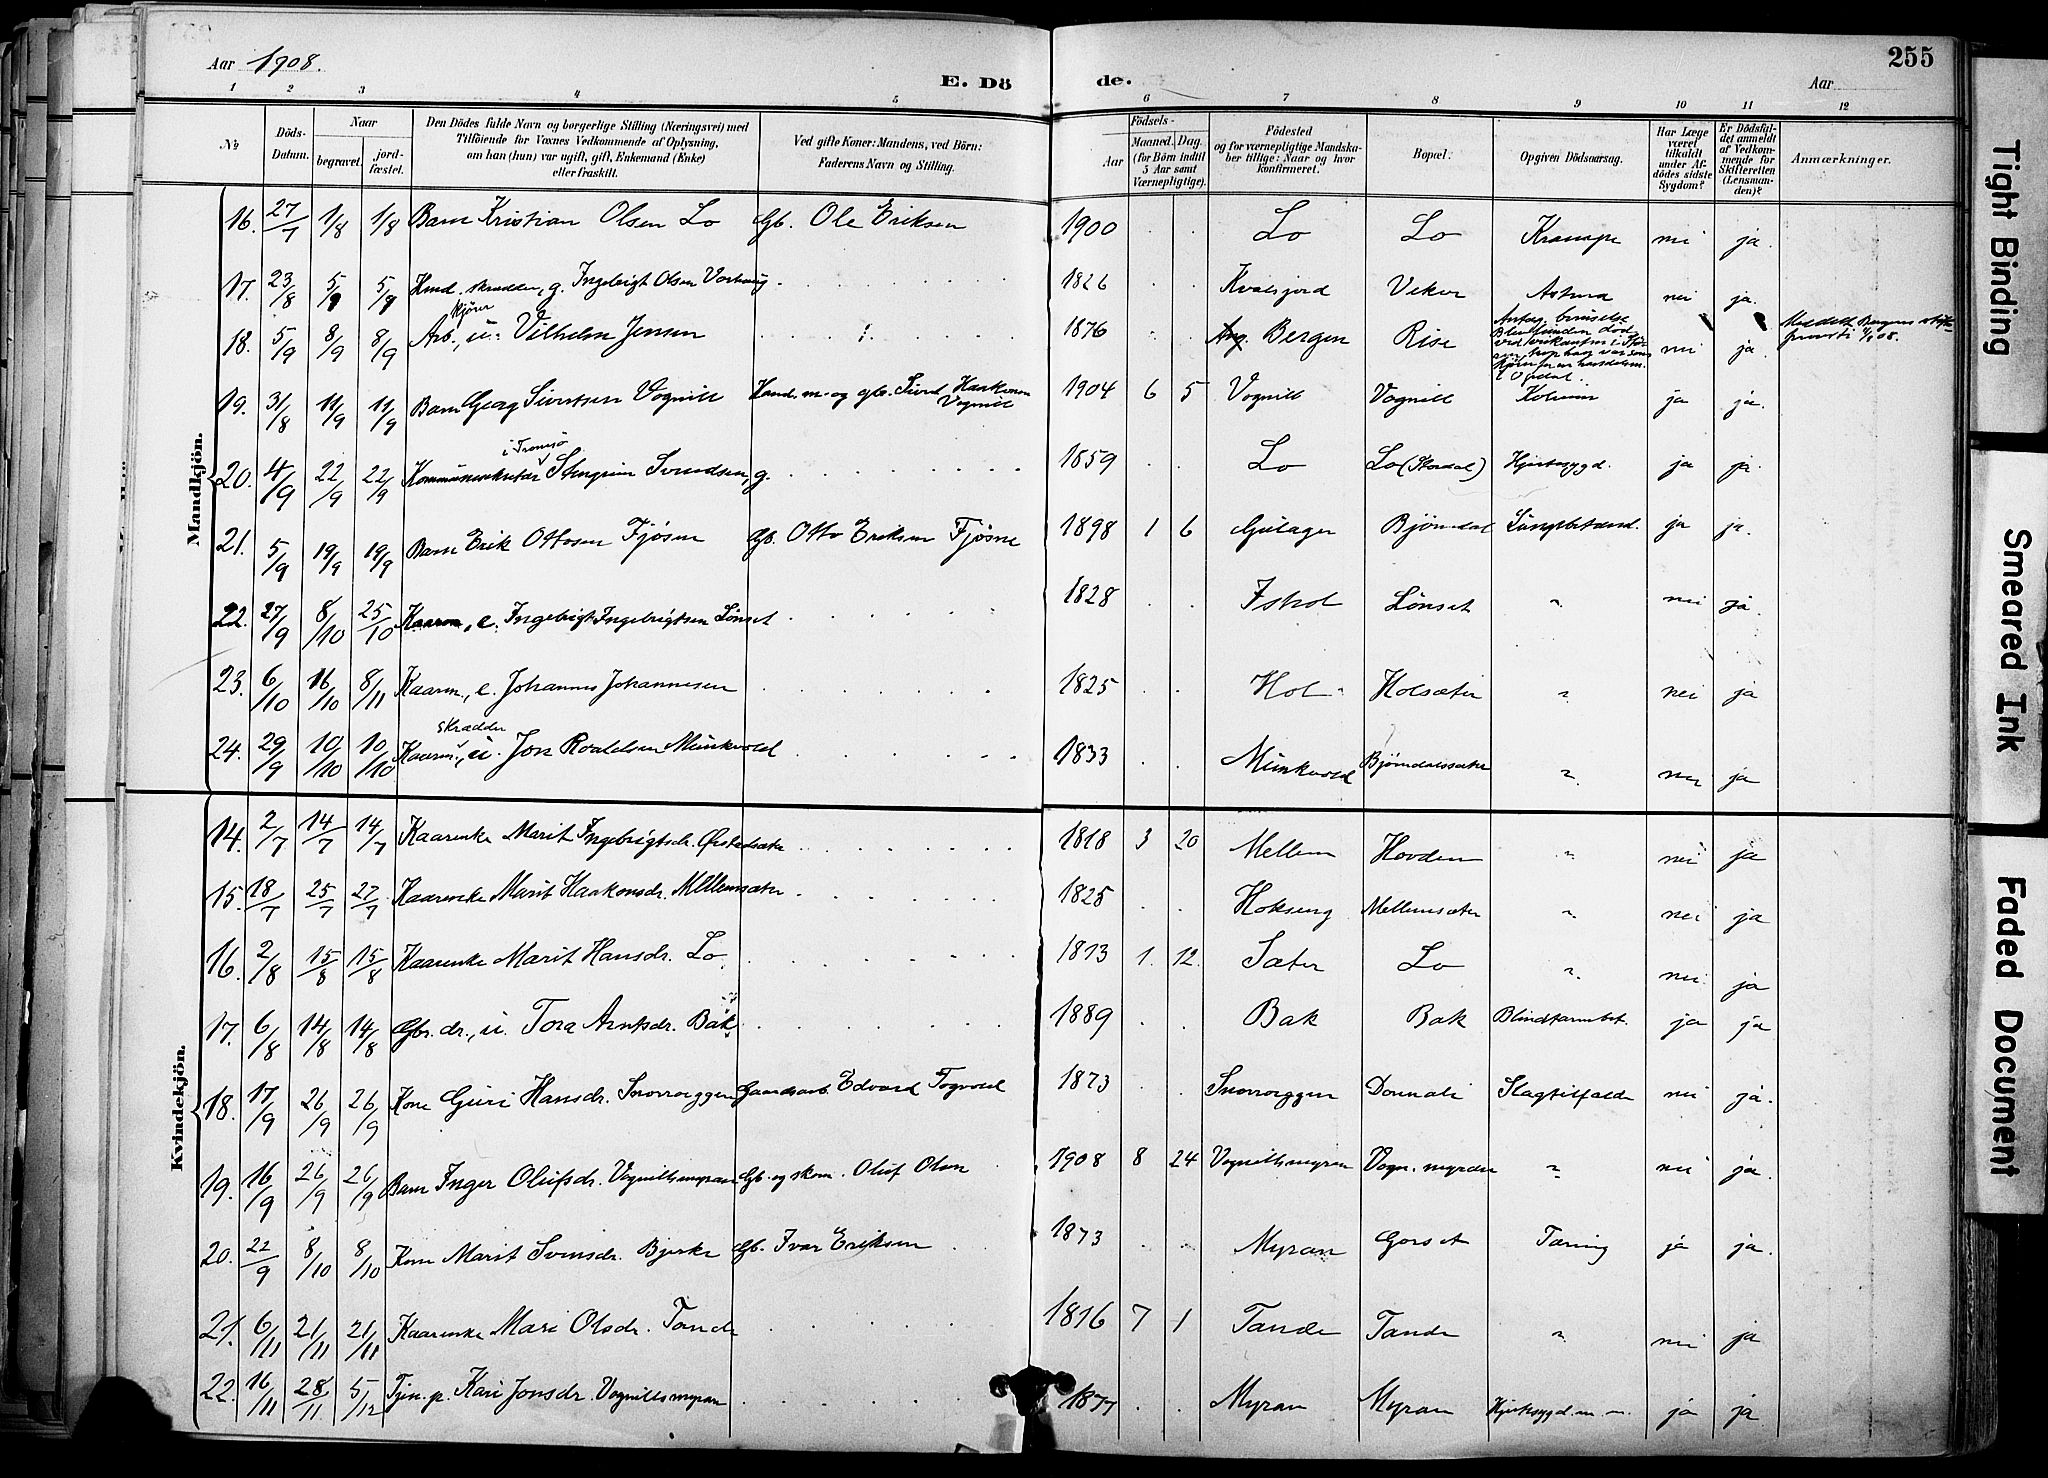 Aar 1908. E. Dö de. Aar 255
1 2 3 4 5 6 7 8 9 10 11 12
No Döds-Datum. Naar begravet. jord-fæstet. Den Dödes fulde Navn og borgerlige Stilling (Næringsvei) med Tilföiende for Voxnes Vedkommende af Oplysning, om han (hun) var ugift, gift, Enkemand (Enke) eller fraskilt. Ved gifte Koner: Mandens, ved Börn: Faderens Navn og Stilling. Födsels- Aar Maaned. Dag. (for Börn indtil 5 Aar samt Værnepligtige). Födested og for værnepligtige Mandskaber tillige: Naar og hvor konfirmeret. Bopæl. Opgiven Dödsaarsag. Har Læge været tilkaldt under Afdödes sidste Sygdom? Er Dödsfaldet anmeldt af Vedkommende for Skifteretten (Lensmanden)? Anmærkninger.
Mandkjön.
16. 27/7 1/8 1/8 Barn Kristian Olsen Lo Gb. Ole Eriksen 1900 Lo Lo Krampe nei ja.
17. 23/8 5/9 5/9 skrædder, g. Ingebrigt Olsen 1826 Veker nei ja.
18. 5/9 8/9 8/9 Arb., kjører u. Vilhelm Jensen 1876 Bergen Rise nei ja.
19. 31/8 11/9 11/9 Barn Georg Sivertsen Vognill Hand.m. og gbr. Sivert Haakonsen Vognill 1904 6 5 Vognill Vognill ja ja.
20. 4/9 22/9 22/9 i Tromsö Stengrim Svendsen, g. 1859 Lo Lo (Stordal) Hjertesygd. ja ja.
21. 5/9 19/9 19/9 Barn Erik Ottosen Fjøsne Gb. Otto Eriksen Fjøsne 1898 1 6 Gulager Bjørndal Lungebetænd. ja ja.
22. 27/9 8/10 25/10 Kaarm., e. Ingebrigt Ingebrigtsen Lønset 1828 Ishol Lønset " nei ja.
23. 6/10 16/10 8/11 Kaarm., e. Johannes Johannesen 1825 Hol Holsæter " nei ja
24. 29/9 10/10 10/10 Kaarm., skrædder u. Jon Roaldsen Munkvold 1833 Munkvold Bjørndalssæter " nei ja
Kvindekjön.
14. 2/7 14/7 14/7 Kaarenke Marit Ingebrigtsdr. Ørstadsæter 1818 3 20 Mellem Hovden " nei ja
15. 18/7 25/7 27/7 Kaarenke Marit Haakonsdr. Mellemsæter 1825 Hokseng Mellemsæter " nei ja
16. 2/8 15/8 15/8 Kaarenke Marit Hansdr. Lo 1813 1. 12. Sæter Lo " nei ja
17. 6/8 14/8 14/8 Gbr. dr., u. Tora Arntsdr. Bak 1889 Bak Bak Blindtarmbet. ja ja
18. 17/9 26/9 26/9 Kone Guri Hansdr. Snoroeggen Gaardsarb. Edvard Togvold 1873 Snoroeggen Donnali Slagtilfælde nei ja.
19. 16/9 26/9 26/9 Barn Inger Olufsdr. Vognillsmyran Gb. og skom. Oluf Olsen 1908 8 24 Vognillsmyran Vogn. myran " nei ja.
20. 22/9 8/10 8/10 Kone Marit Svensdr. Bjerke Gb. Ivar Eriksen 1873 Myran Gorset Tæring ja ja.
21. 6/11 21/11 21/11 Kaarenke Mari Olsdr. Tande 1816 7 1 Tande Tande " nei ja
22. 16/11 28/11 5/12 Tjen. p. Kari Jonsdr. Vognillsmyran 1877 Myran Myran Hjertesygd. m. m. ja ja
Tight Binding
Smeared Ink
Faded Document